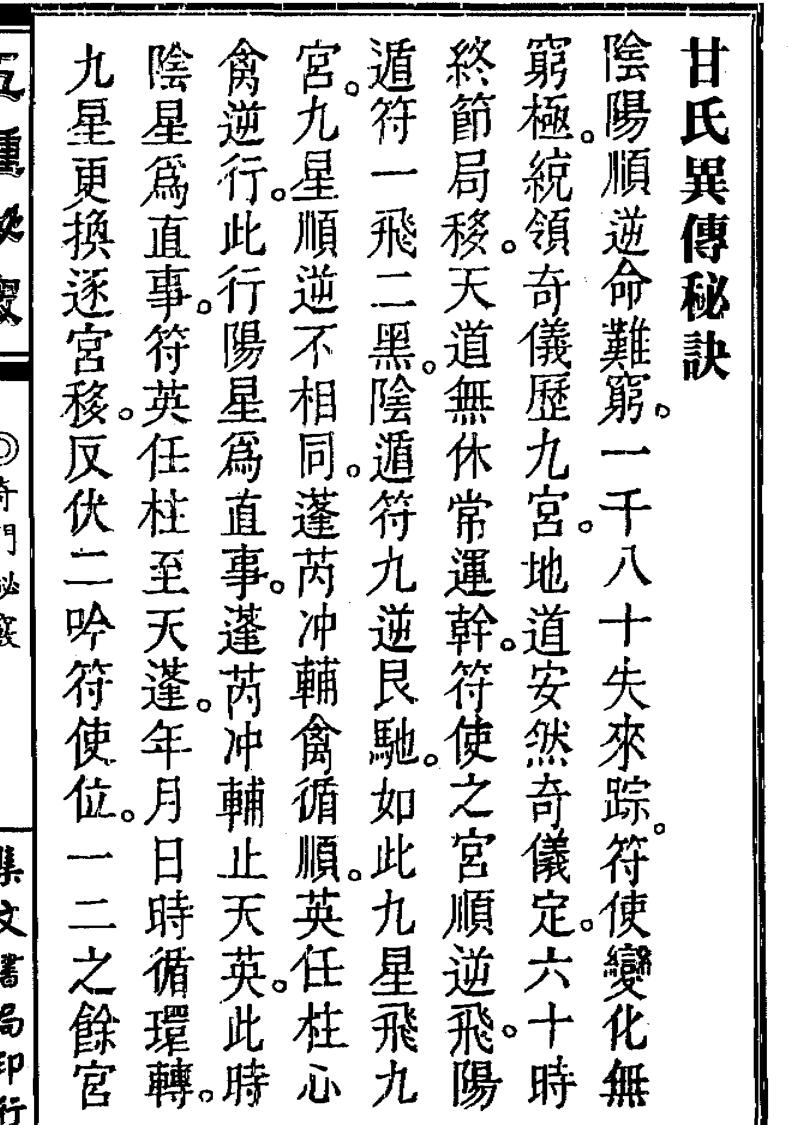 甘氏異傳秘訣
陰陽順逆命難窮。一千八十失來踪。符使變化無
窮極。統領奇儀歷九宮。地道安然奇儀定。六十時
終節局移。天道無休常運幹。符使之宮順逆飛。陽
遁符一飛二黑。陰遁符九逆艮馳。如此九星飛九
宮。九星順逆不相同。蓬芮冲輔禽循順。英任柱心
禽逆行。此行陽星爲直事。蓬芮冲輔止天英。此時
陰星爲直事。符英任柱至天蓬。年月日時循環轉。
九星更換逐宮移。反伏二吟符使位。一二之餘宮
五種秘竅
◎奇門秘竅
集文書局印行